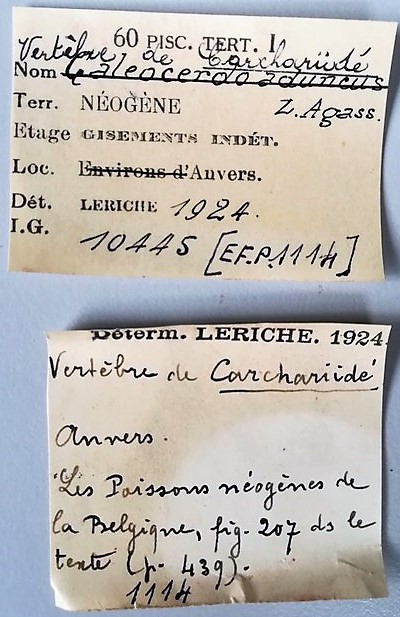 60 PISC. TERT. I
Vertèbre de Carchariidé
Nom Galeocerdo aduncus
Terr. NÉOGÈNE L. Agass.
Etage GISEMENTS INDÉT.
Loc. Environs d'Anvers.
Dét. LERICHE 1924.
I.G. 10445 [E.F.P.1114]
Déterm. LERICHE. 1924.
Vertèbre de Carchariidé
Anvers.
"Les Poissons néogènes de
la Belgique, fig. 207 ds le
texte (p. 439).
1114